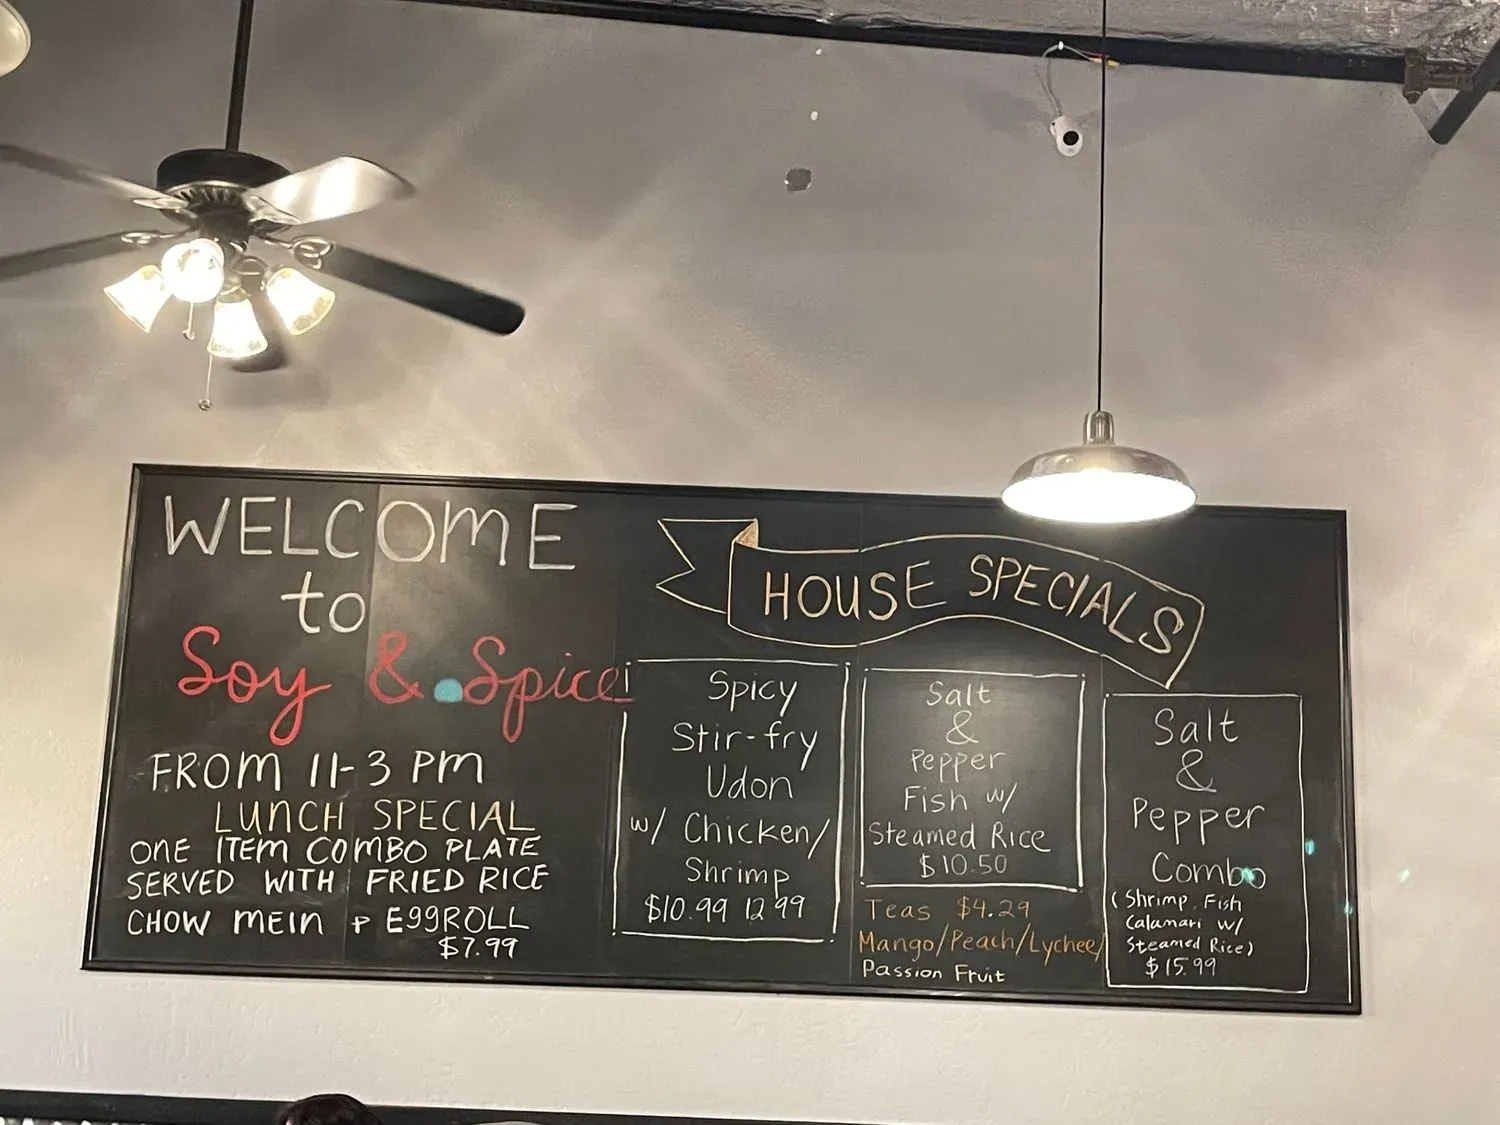 WELCOME
to
Soy & Spice!
FROM 11-3 PM
LUNCH SPECIAL
ONE ITEM COMBO PLATE
SERVED WITH FRIED RICE
CHOW MEIN & EGGROLL
$7.99
HOUSE SPECIALS
Spicy
Stir-fry
Udon
w/ Chicken/
Shrimp
$10.99 12.99
Salt
&
Pepper
Fish w/
Steamed Rice
$10.50
Teas $4.29
Mango/Peach/Lychee/
Passion Fruit
Salt
&
Pepper
Combo
(Shrimp, Fish
Calamari w/
Steamed Rice)
$15.99